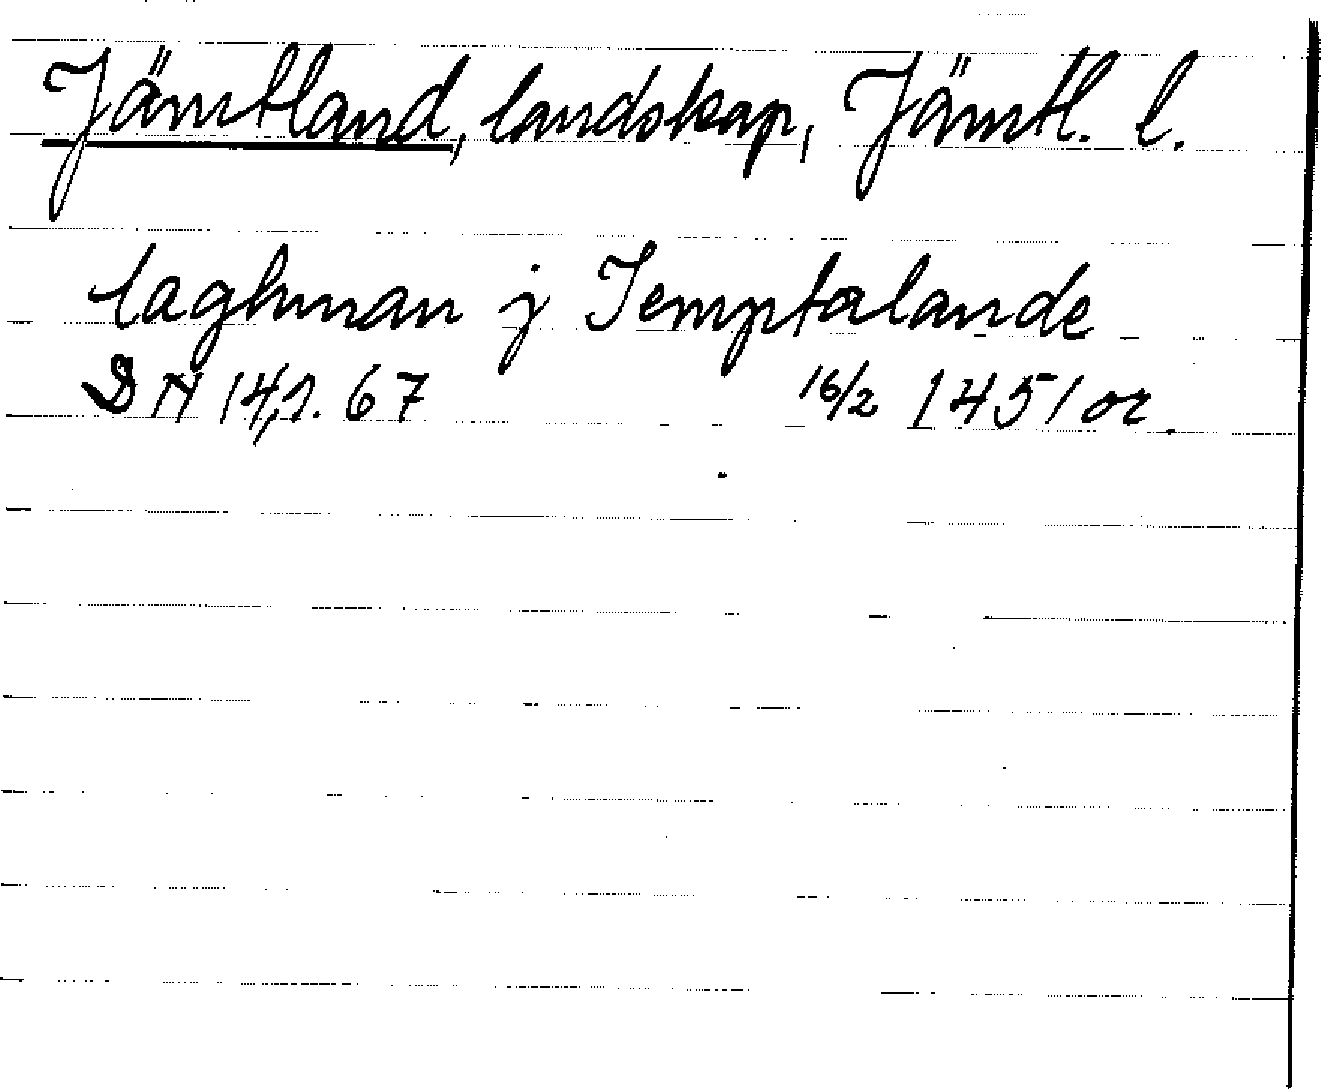 Jämtland, landskap, Jämtl. l.
laghman j Jemptalande
DN 14,1. 67 16/2 1451 or.